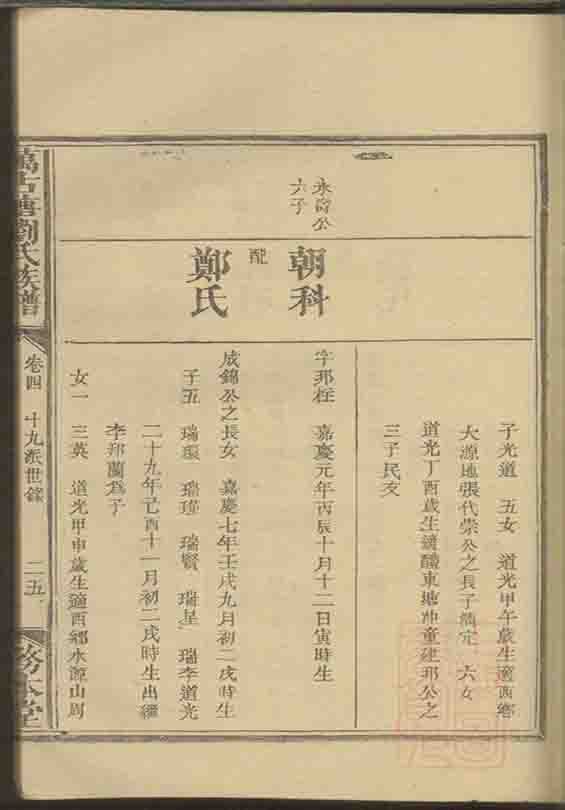 子光道 五女 道光甲午歲生適西鄉
大源地張代崇公之長子 定 六女
道光丁酉歲生 醴東塘冲童建邦公之
三子民交
永 公
六子
朝科
字邦柱 嘉慶元年丙辰十月十二日寅時生
配
鄭氏
成錦公之長女 嘉慶七年壬戌九月初二戌時生
子五 瑞環 瑞瑾 瑞賢 瑞星 瑞李道光
二十九年己酉十一月初二戌時生出繼
李邦蘭為子
女一 三英 道光甲申歲生適西鄉水源山周
萬古塘劉氏族譜
卷四 十九派世錄
二五
本堂